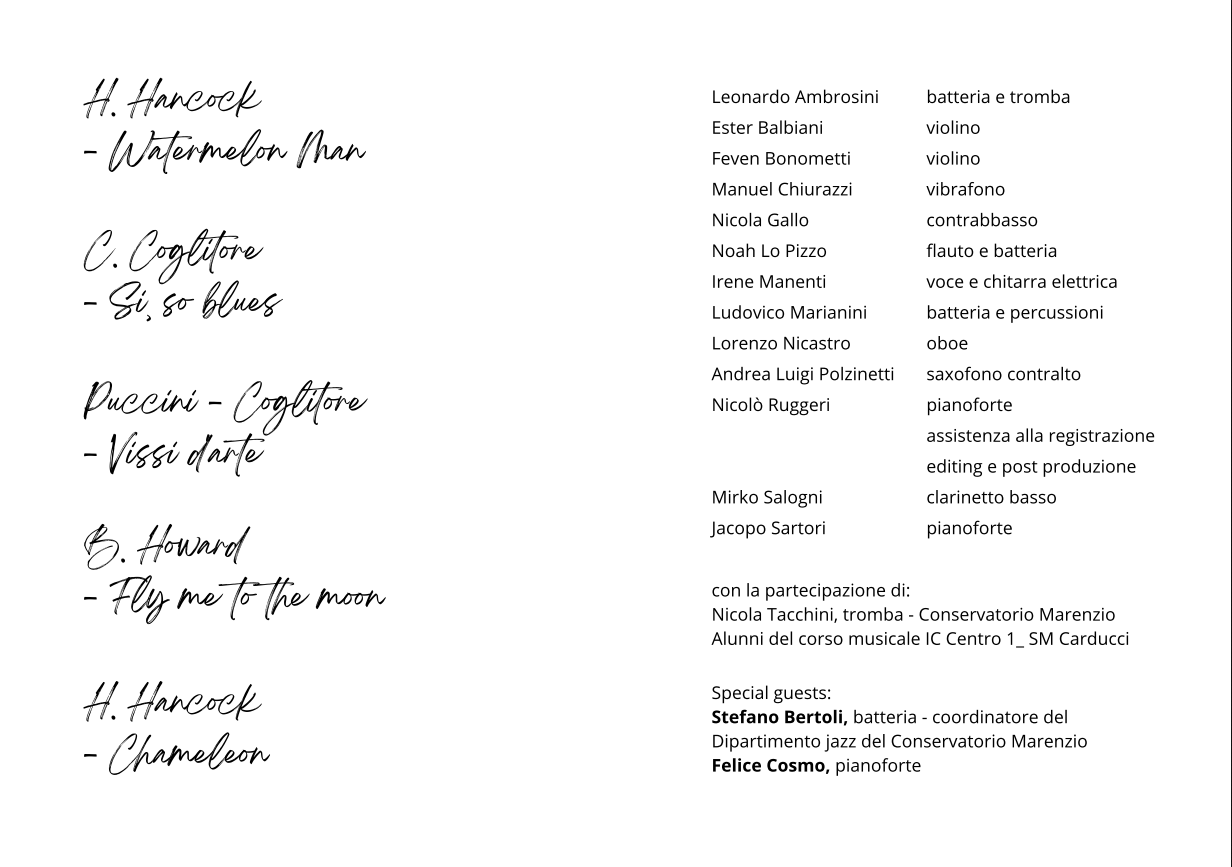 H. Hancock
- Watermelon Man
C. Coglitore
- Si, so blues
Puccini - Coglitore
- Vissi d'arte
B. Howard
- Fly me to the moon
H. Hancock
- Chameleon
Leonardo Ambrosini batteria e tromba
Ester Balbiani violino
Feven Bonometti violino
Manuel Chiurazzi vibrafono
Nicola Gallo contrabbasso
Noah Lo Pizzo flauto e batteria
Irene Manenti voce e chitarra elettrica
Ludovico Marianini batteria e percussioni
Lorenzo Nicastro oboe
Andrea Luigi Polzinetti saxofono contralto
Nicolò Ruggeri pianoforte
assistenza alla registrazione
editing e post produzione
Mirko Salogni clarinetto basso
Jacopo Sartori pianoforte
con la partecipazione di:
Nicola Tacchini, tromba - Conservatorio Marenzio
Alunni del corso musicale IC Centro 1_ SM Carducci
Special guests:
Stefano Bertoli, batteria - coordinatore del
Dipartimento jazz del Conservatorio Marenzio
Felice Cosmo, pianoforte